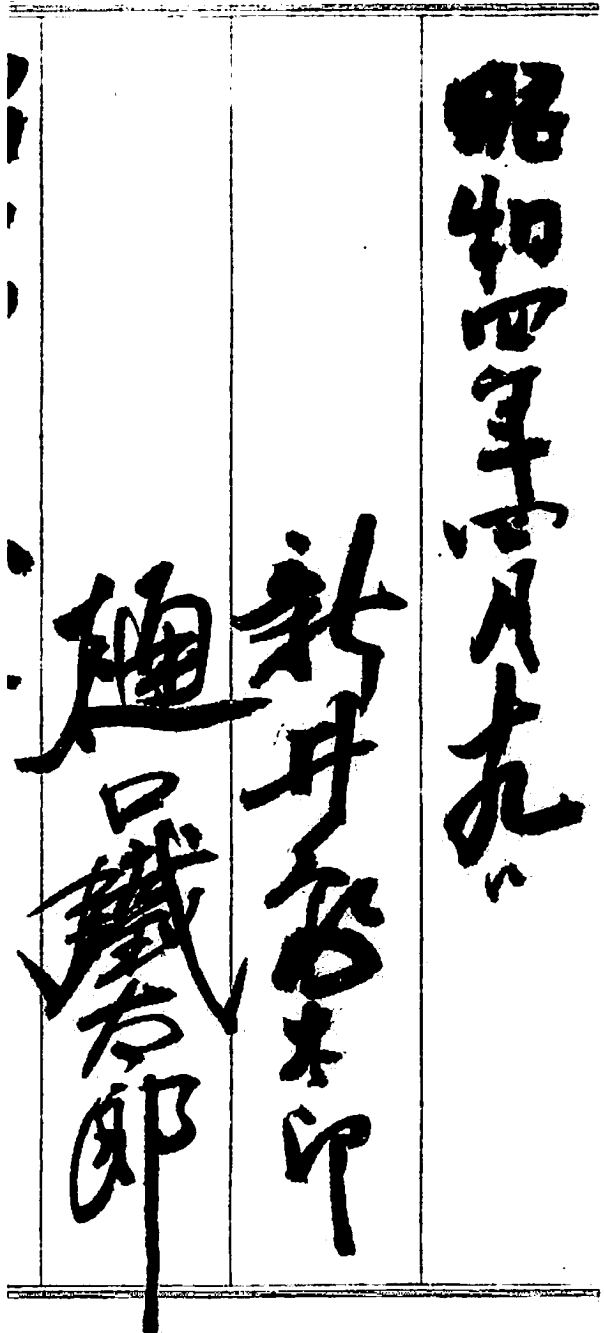 昭和四年四月十九日
新井 印
樋口鐵太郎